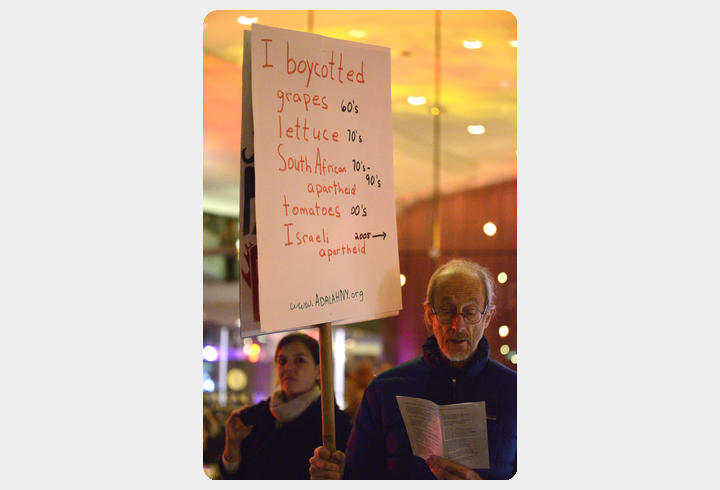 I boycotted
grapes 60's
lettuce 70's
South African 70's-
apartheid 90's
tomatoes 00's
Israeli 2005→
apartheid
www.ADALAHNY.org